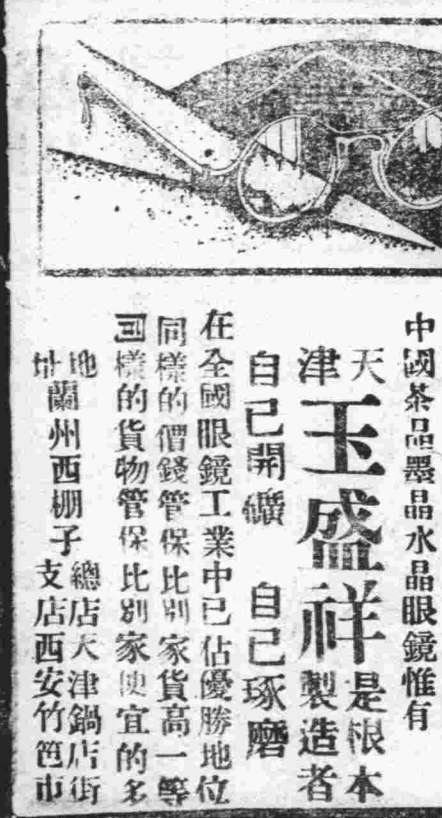 中國茶晶墨晶水晶眼鏡惟有
天津玉盛祥是根本製造者
自己開礦 自己琢磨
在全國眼鏡工業中已佔優勝地位
同樣的價錢管保比別家貨高一等
同樣的貨物管保比別家便宜的多
地址蘭州西棚子
總店天津鍋店街
支店西安竹笆市